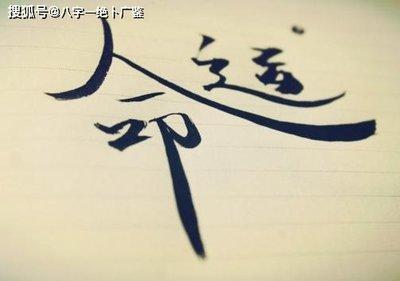 搜狐号@八字一绝卜广鉴
命运